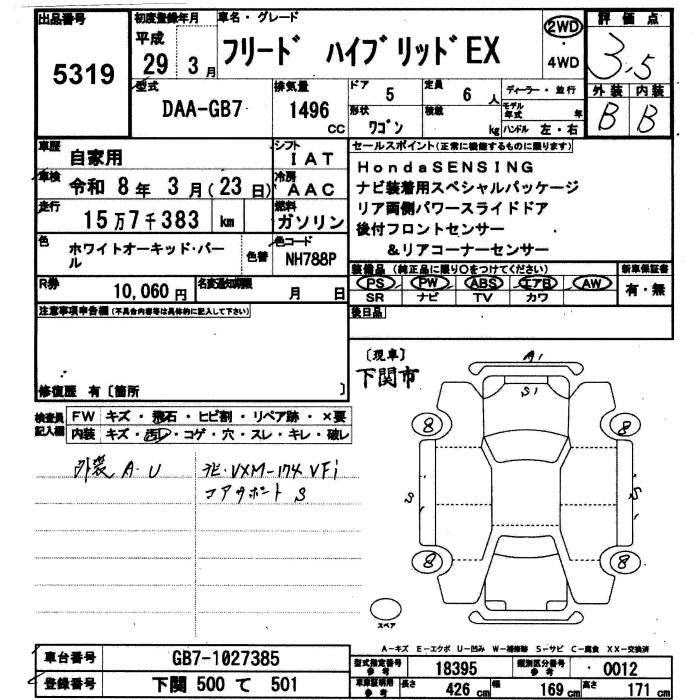 出品番号
5319
初度登録年月
平成
29年 3月
車名・グレード
フリード ハイブリッド EX
2WD
・
4WD
評価点
3.5
外装 内装
B B
型式
DAA-GB7
排気量
1496
CC
ドア
5
定員
6人
形状
ワゴン
積載
kg
ディーラー・並行
モデル年式
年
ハンドル 左・右
車歴
自家用
シフト
IAT
車検
令和 8年 3月(23日)
冷房
AAC
走行
15万7千383 km
燃料
ガソリン
色
ホワイトオーキッド・パール
色替
色コード
NH788P
R券
10,060円
名変通知期限
月 日
セールスポイント(正常に機能するものに限ります)
HondaSENSING
ナビ装着用スペシャルパッケージ
リア両側パワースライドドア
後付フロントセンサー
&リアコーナーセンサー
装備品 (純正品に限り○をつけてください)
PS PW ABS エアB AW
SR ナビ TV カワ
新車保証書
有・無
後日品
注意事項申告欄(不具合内容等は具体的に記入して下さい)
修復歴 有〔箇所 〕
検査員
記入欄
FW キズ・飛石・ヒビ割・リペア跡・×要
内装 キズ・汚レ・コゲ・穴・スレ・キレ・破レ
外装 A・U
ナビ・VXM-174VFi
コアサポート S
〔現車〕
下関市
A1
S1
8
8
S
S
8
8
スペア
A-キズ E-エクボ U-凹み W-補修跡 S-サビ C-腐食 XX-交換済
車台番号
GB7-1027385
登録番号
下関 500 て 501
型式指定番号
参考
18395
類別区分番号
参考
0012
車庫証明用
参考
長さ
426 cm
幅
169 cm
高さ
171 cm